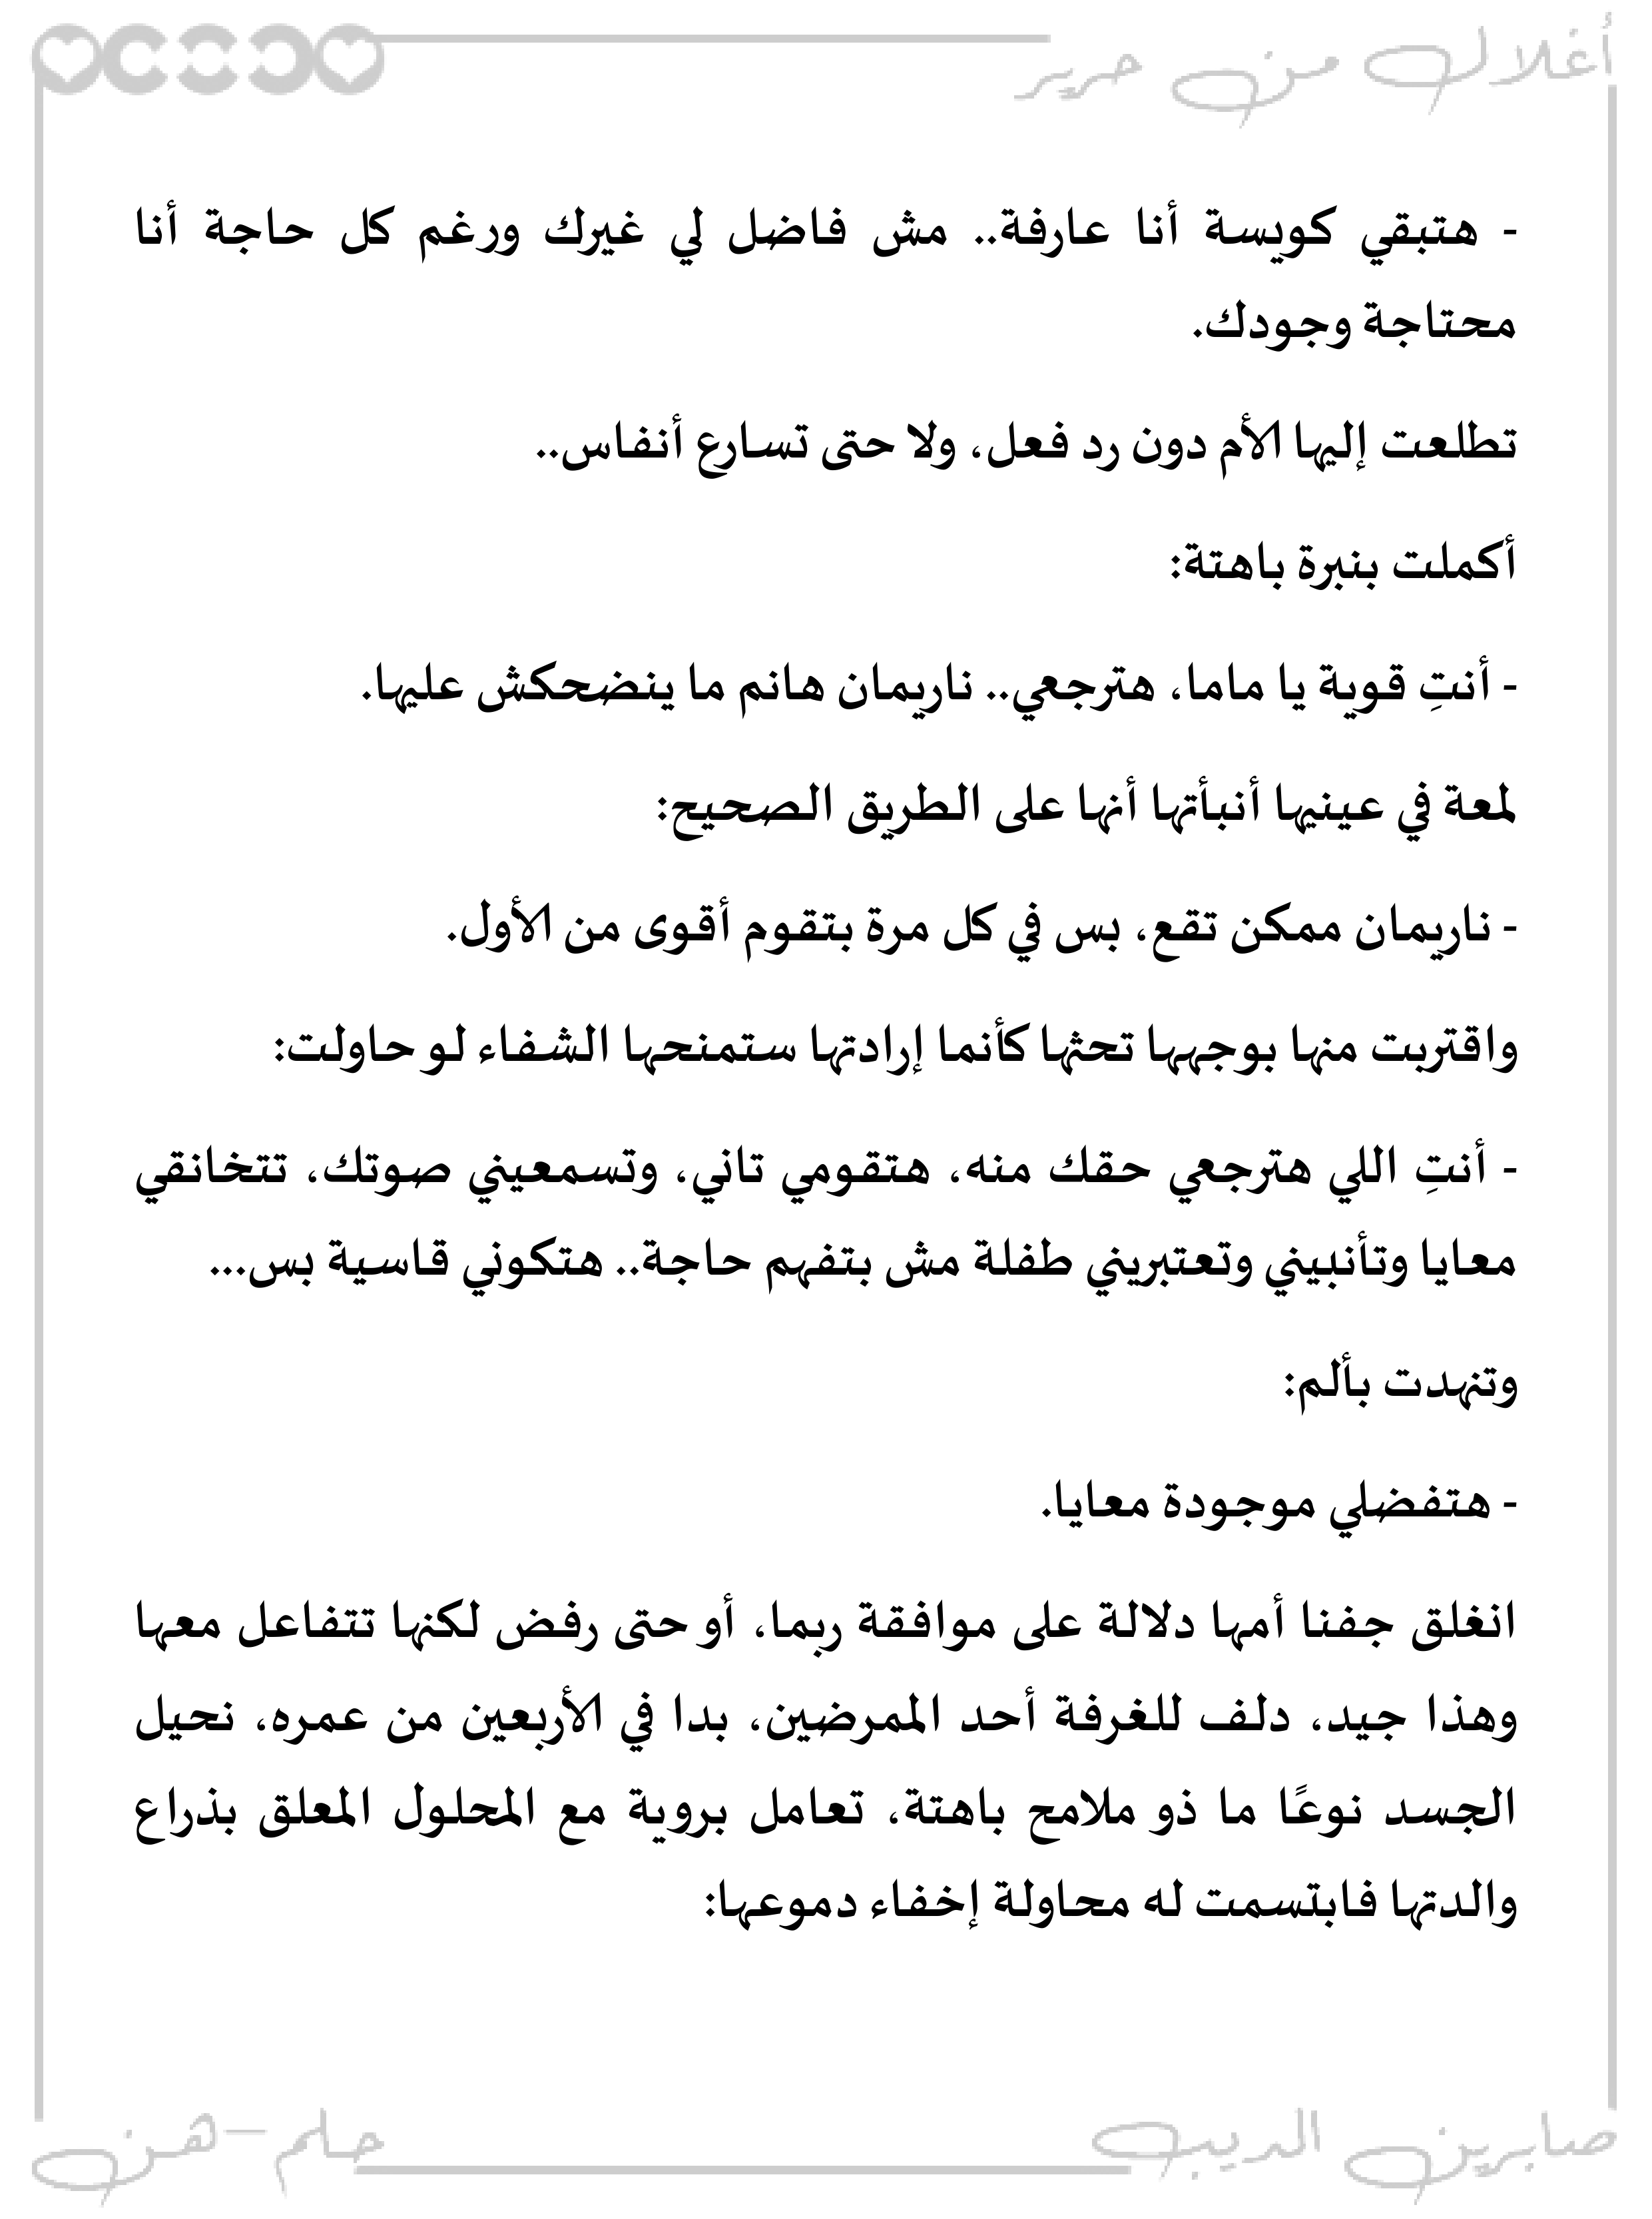 أغلال من حرير
- هتبقي كويسة أنا عارفة.. مش فاضل لي غيرك ورغم كل حاجة أنا
محتاجة وجودك.
تطلعت إليها الأم دون رد فعل، ولا حتى تسارع أنفاس..
أكملت بنبرة باهتة:
- أنتِ قوية يا ماما، هترجعي.. ناريمان هانم ما ينضحكش عليها.
لمعة في عينيها أنبأتها أنها على الطريق الصحيح:
- ناريمان ممكن تقع، بس في كل مرة بتقوم أقوى من الأول.
واقتربت منها بوجهها تحثها كأنما إرادتها ستمنحها الشفاء لو حاولت:
- أنتِ اللي هترجعي حقك منه، هتقومي تاني، وتسمعيني صوتك، تتخانقي
معايا وتأنبيني وتعتبريني طفلة مش بتفهم حاجة.. هتكوني قاسية بس...
وتنهدت بألم:
- هتفضلي موجودة معايا.
انغلق جفنا أمها دلالة على موافقة ربما، أو حتى رفض لكنها تتفاعل معها
وهذا جيد، دلف للغرفة أحد الممرضين، بدا في الأربعين من عمره، نحيل
الجسد نوعًا ما ذو ملامح باهتة، تعامل بروية مع المحلول المعلق بذراع
والدتها فابتسمت له محاولة إخفاء دموعها:
صابرين الديب
حلم-هن